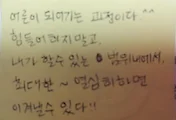 여름이 되어가는 과정이다 ^^
힘들어하지말고,
내가 할수 있는 범위내에서,
최대한 ~ 열심히하면
이겨낼수 있다!!